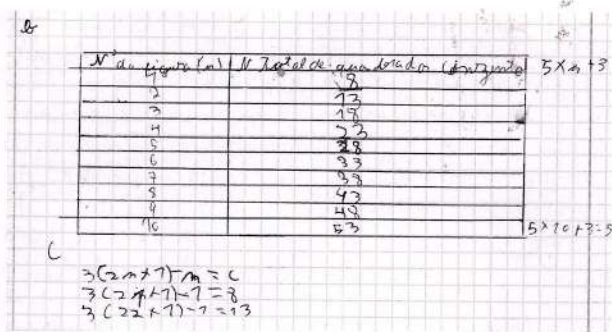 b
Nº da figura (n) N total de quadrados cinzento 5×n+3
1 8
2 13
3 18
4 23
5 28
6 33
7 38
8 43
9 48
10 53 5×10+3=5
C
3(2n+1)-n=c
3(2×1+1)-1=8
3(2×2+1)-2=13